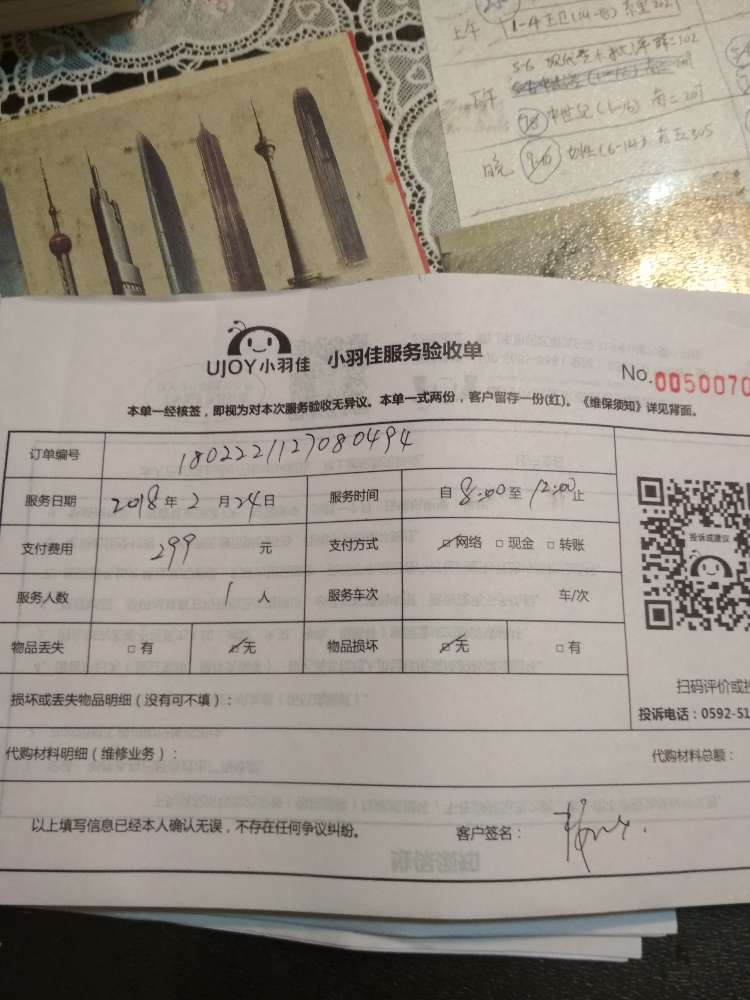 上午
1-4
5-6
下午
78
(1-16) 南二207
晚
9-10
(6-14)
UJOY小羽佳 小羽佳服务验收单
No.0050070
本单一经核签，即视为对本次服务验收无异议。本单一式两份，客户留存一份(红)。《维保须知》详见背面。
订单编号 1802221127080494
服务日期 2018年2月24日 服务时间 自8:00至12:00止
投诉或建议
支付费用 299元 支付方式 网络 现金 转账
服务人数 1人 服务车次 车/次
物品丢失 有 无 物品损坏 无 有
扫码评价或投
损坏或丢失物品明细（没有可不填）：
投诉电话：0592-51
代购材料明细（维修业务）： 代购材料总额：
以上填写信息已经本人确认无误，不存在任何争议纠纷。 客户签名：